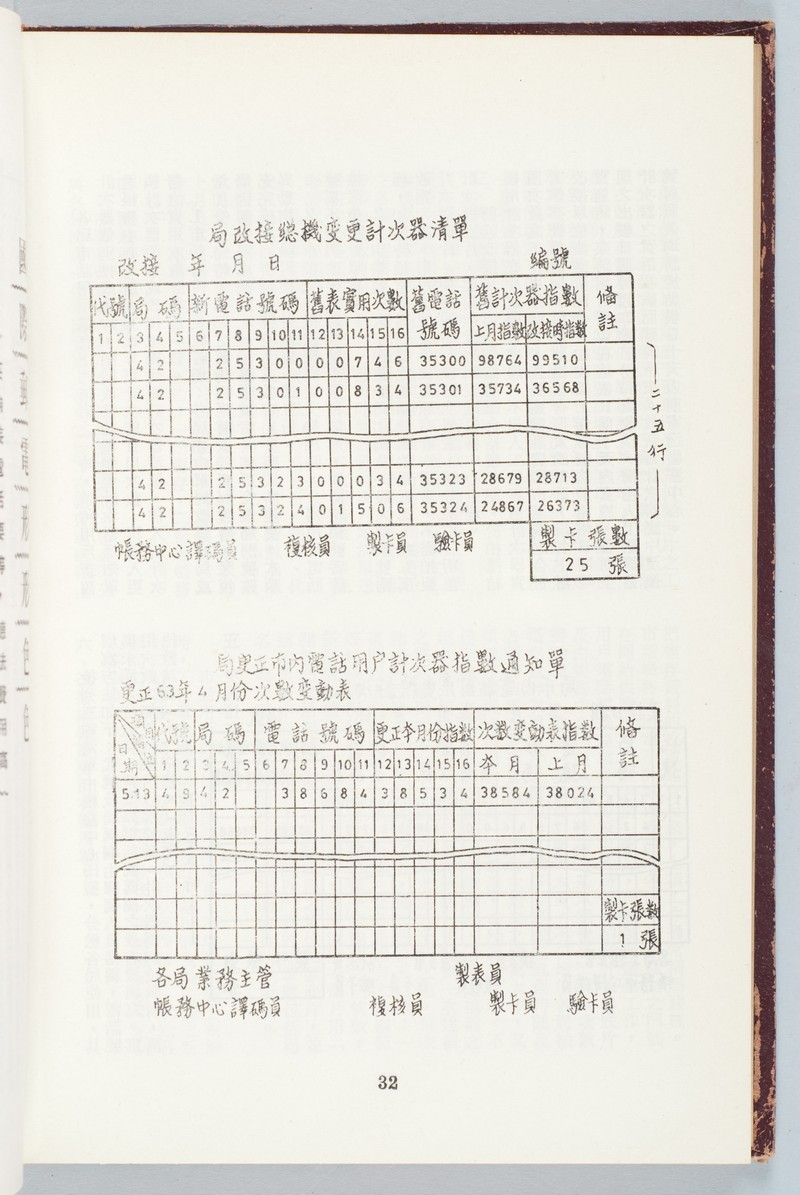 局改接總機変更計次器清單
改接 年 月 日 編號
代號 局碼 新電話號碼 舊表實用次數 舊電話號碼 舊計次器指數 備註
1 2 3 4 5 6 7 8 9 10 11 12 13 14 15 16 上月指數 改接時指數
4 2 2 5 3 0 0 0 0 7 4 6 35300 98764 99510
4 2 2 5 3 0 1 0 0 8 3 4 35301 35734 36568
二十五行
4 2 2 5 3 2 3 0 0 0 3 4 35323 28679 28713
4 2 2 5 3 2 4 0 1 5 0 6 35324 24867 26373
帳務中心譯碼員 複核員 製卡員 驗卡員 製卡張數
25 張
局更正市內電話用户計次器指數通知單
更正63年4月份次數変動表
日期 代號 局碼 電話號碼 更正本月份指數 次數変動表指數 備註
1 2 3 4 5 6 7 8 9 10 11 12 13 14 15 16 本月 上月
5.13 4 9 4 2 3 8 6 8 4 3 8 5 3 4 38584 38024
製卡張數
1 張
各局業務主管 製表員
帳務中心譯碼員 複核員 製卡員 驗卡員
32